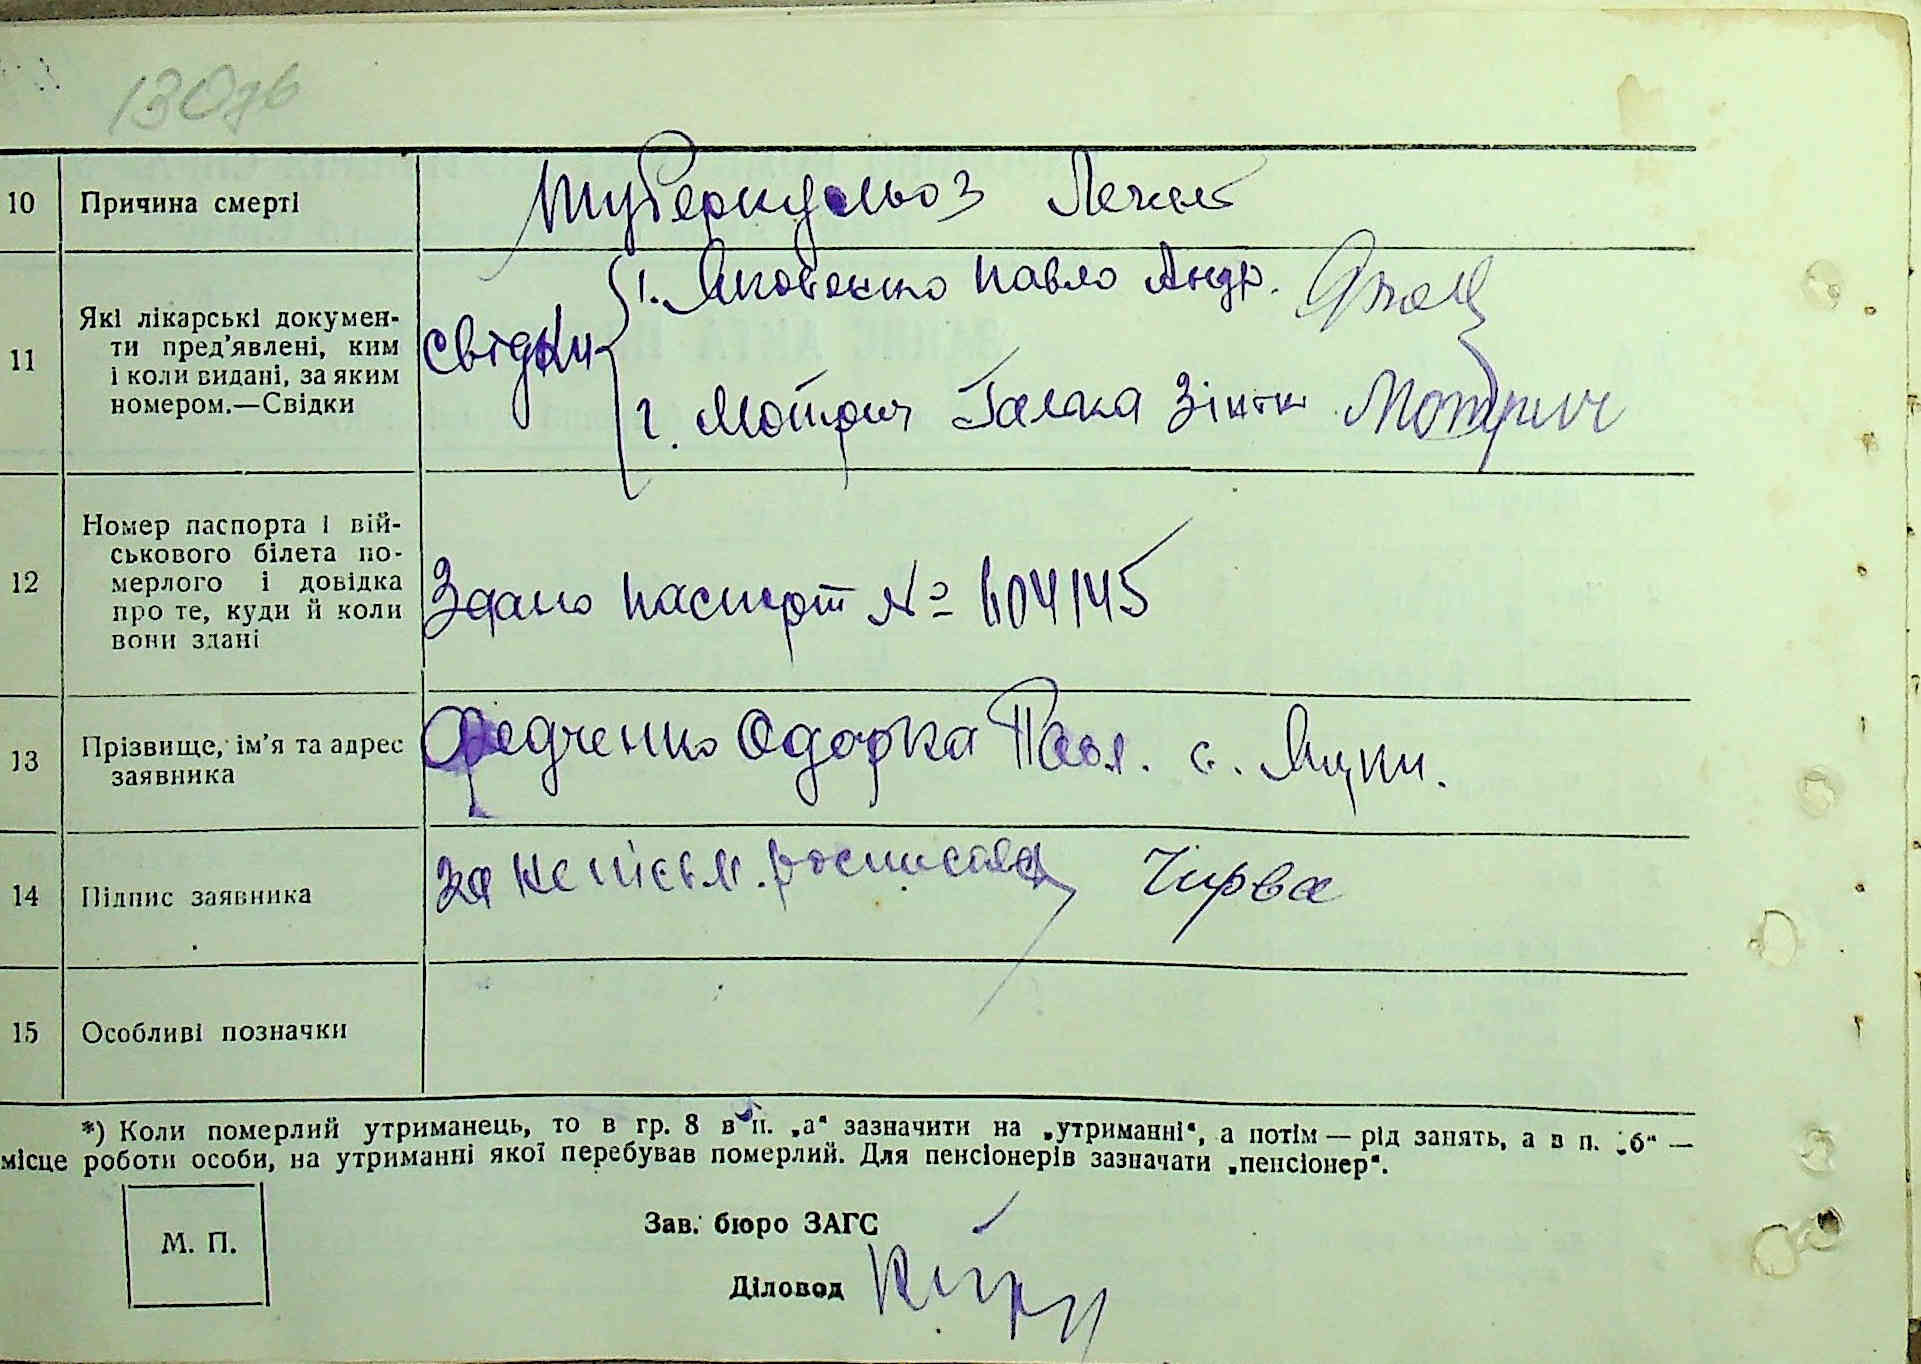 130зв
10 Причина смерті Туберкульоз Легенів
11 Які лікарські докумен-
ти пред'явлені, ким
і коли видані, за яким
номером.—Свідки
свідки
1. Яковенко Павло Андр.
2. Мотрич Галка Мотрич
12 Номер паспорта і вій-
ськового білета по-
мерлого і довідка
про те, куди й коли
вони здані
Здано паспорт № 604145
13 Прізвище, ім'я та адрес
заявника
Федченко Одарка Павл. с. Яцки.
14 Підпис заявника за неписьм. росписалась Чирва
15 Особливі позначки
*) Коли померлий утриманець, то в гр. 8 в п. „а“ зазначити на „утриманні“, а потім — рід занять, а в п. „б“ —
місце роботи особи, на утриманні якої перебував померлий. Для пенсіонерів зазначати „пенсіонер“.
М. П.
Зав. бюро ЗАГС
Діловод